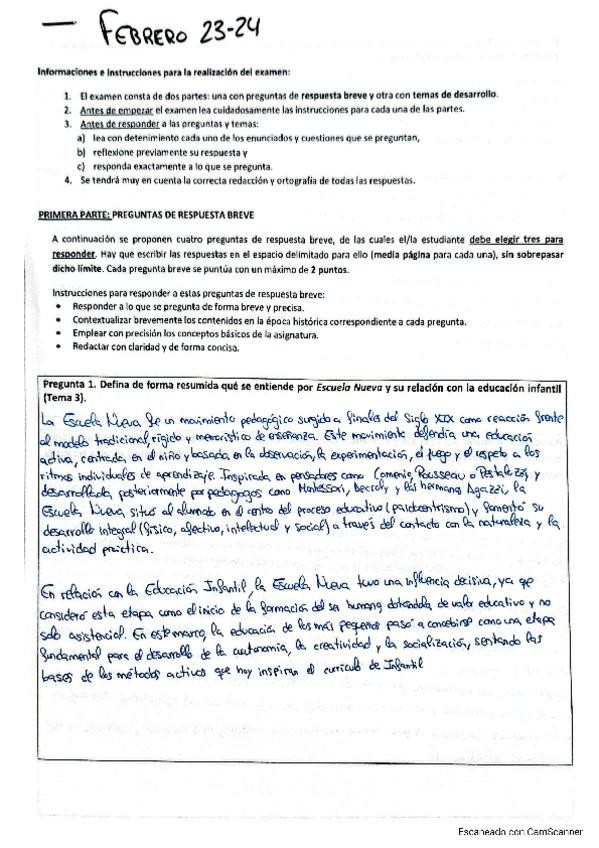 — FEBRERO 23-24
Informaciones e Instrucciones para la realización del examen:
1. El examen consta de dos partes: una con preguntas de respuesta breve y otra con temas de desarrollo.
2. Antes de empezar el examen lea cuidadosamente las instrucciones para cada una de las partes.
3. Antes de responder a las preguntas y temas:
a) lea con detenimiento cada uno de los enunciados y cuestiones que se preguntan,
b) reflexione previamente su respuesta y
c) responda exactamente a lo que se pregunta.
4. Se tendrá muy en cuenta la correcta redacción y ortografía de todas las respuestas.
PRIMERA PARTE: PREGUNTAS DE RESPUESTA BREVE
A continuación se proponen cuatro preguntas de respuesta breve, de las cuales el/la estudiante debe elegir tres para
responder. Hay que escribir las respuestas en el espacio delimitado para ello (media página para cada una), sin sobrepasar
dicho límite. Cada pregunta breve se puntúa con un máximo de 2 puntos.
Instrucciones para responder a estas preguntas de respuesta breve:
• Responder a lo que se pregunta de forma breve y precisa.
• Contextualizar brevemente los contenidos en la época histórica correspondiente a cada pregunta.
• Emplear con precisión los conceptos básicos de la asignatura.
• Redactar con claridad y de forma concisa.
Pregunta 1. Defina de forma resumida qué se entiende por Escuela Nueva y su relación con la educación infantil
(Tema 3).
La Escuela Nueva fue un movimiento pedagógico surgido a finales del Siglo XIX como reacción frente
al modelo tradicional, rígido y memorístico de enseñanza. Este movimiento defendía una educación
activa, centrada, en el niño y basada en la observación, la experimentación, el juego y el respeto a los
ritmos individuales de aprendizaje. Inspirada en pensadores como Comenio, Rousseau o Pestalozzi y
desarrollada, posteriormente por pedagogos como Montessori, Decroly y las hermanas Agazzi, la
Escuela Nueva situó al alumnado en el centro del proceso educativo (paidocentrismo) y fomentó su
desarrollo integral (físico, afectivo, intelectual y social) a través del contacto con la naturaleza y la
actividad práctica.
En relación con la Educación Infantil, la Escuela Nueva tuvo una influencia decisiva, ya que
consideró esta etapa como el inicio de la formación del ser humano dotándola de valor educativo y no
solo asistencial. En este marco, la educación de los más pequeños pasó a concebirse como una etapa
fundamental para el desarrollo de la autonomía, la creatividad y la socialización, sentando las
bases de los métodos activos que hoy inspiran el currículo de Infantil
Escaneado con CamScanner